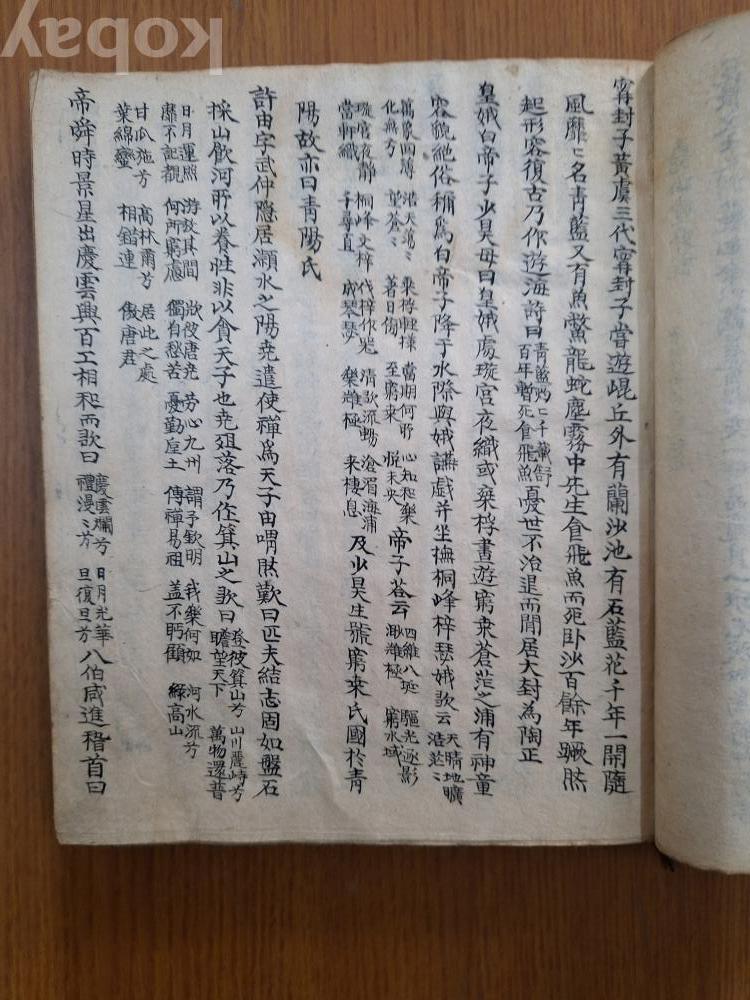 kobay
甯封子黃虞三代甯封子嘗遊崐丘外有蘭沙池有石藍花千年一開隨
風靡〻名靑藍又有魚鱉龍蛇塵霧中先生食飛魚而死卧沙百餘年蹶然
起形容復古乃作遊海詩曰靑藍灼〻千載舒
百年暫死食飛魚憂世不治退而閒居大封爲陶正
皇娥白帝子少昊母曰皇娥處璇宮夜織或乘桴晝遊窮桑蒼茫之浦有神童
容貌絶俗稱爲白帝子降于水際與娥讌戱並坐撫桐峰梓瑟娥歌云天晴地曠
浩茫〻
萬象回薄 浩天蕩〻 乘桴輕樣 當期何所 心知和樂
化無方 望蒼〻 著日傍 至窮桑 悅未央 帝子荅云 四維八埏 驅光逐影
眇難極 窮水域
璇宮夜靜 桐峰文梓 伐梓作器 淸歌流暢 滄眉海浦
當軒織 千尋直 成琴瑟 樂難極 來棲息 及少昊生號窮桑氏國於靑
陽故亦曰靑陽氏
許由字武仲隱居潁水之陽堯遣使禪爲天子由喟然歎曰匹夫結志固如盤石
採山飮河所以養性非以貪天子也堯殂落乃作箕山之歌曰登彼箕山芳 山川麗崎芳
瞻望天下 萬物還普
日月運照 游放其間 歎彼唐堯 勞心九州 謂予欽明 我樂何如 河水流芳
靡不記覩 何所窮慮 獨自愁苦 憂勤庭土 傳禪易祖 盖不盻顧 緣高山
甘瓜施芳 高林爾芳 居此之處
葉綿蠻 相錯連 傲唐君
帝舜時景星出慶雲興百工相和而歌曰慶雲爛芳 日月光華
禮漫〻芳 旦復旦芳 八伯咸進稽首曰